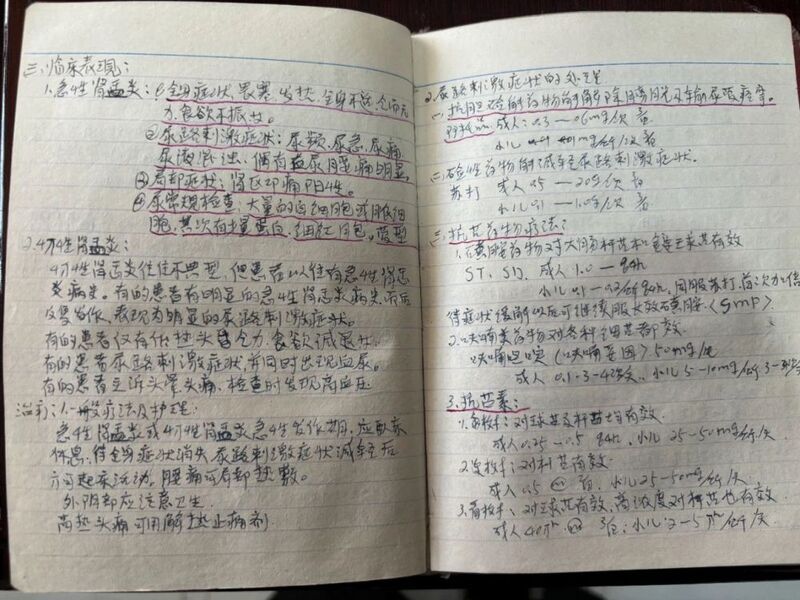 三、临床表现：
1.急性肾盂炎：①全身症状：畏寒、发热、全身不适、全而无
力、食欲不振等。
②尿路刺激症状：尿频、尿急、尿痛
尿液浑浊、偶有血尿、腰痛明显。
③局部症状：肾区叩痛阳性。
④尿常规检查：大量的白细胞或脓细
胞，其次有少量蛋白、细红胞、管型
2.慢性肾盂炎：
慢性肾盂炎往往不典型，但患者以往有急性肾盂
炎病史。有的患者有明显的急性肾盂炎病史，而后
反复发作，表现为明显的尿路刺激症状。
有的患者仅有低热头昏乏力、食欲减退等。
有的患者尿路刺激症状，并同时出现血尿。
有的患者主诉头晕头痛，检查时发现高血压
治疗：1.一般疗法及护理：
急性肾盂炎或慢性肾盂炎急性发作期，应卧床
休息，待全身症状消失，尿路刺激症状减轻后
方可起床活动，腰痛可局部热敷。
外阴部应注意卫生。
高热头痛可用解热止痛剂
2.尿路刺激症状的处理
(一)抗胆碱能药物能解除膀胱及输尿管痉挛。
阿托品：成人：0.3—0.6mg/次
小儿 mg/斤/次
(二)硷性药物能减轻尿路刺激症状。
苏打 成人 0.5—2.0g/次
小儿 0.1—1.0g/次
三、抗菌药物疗法：
1.磺胺药物对大肠杆菌和链球菌有效
ST、SD、成人 1.0— 4h
小儿 /斤 4h、同服苏打、首次加倍
待症状缓解以后可继续服长效磺胺。〈SMP〉
2.呋喃类药物对各种细菌都效
呋喃呾啶（呋喃 因）50mg/片
成人 0.1·3-4次/天、小儿 5-10mg/斤/ 3-4
3.抗菌素：
1.合霉素：对球菌及杆菌均有效
成人 0.25—0.5 4h、小儿 25-50mg/斤/天
2. 对杆菌有效
成人 0.5 小儿 25-50mg/斤/天
3. 对球菌有效，高浓度对杆菌也有效
成人 40万 小儿 2-5万/斤/天